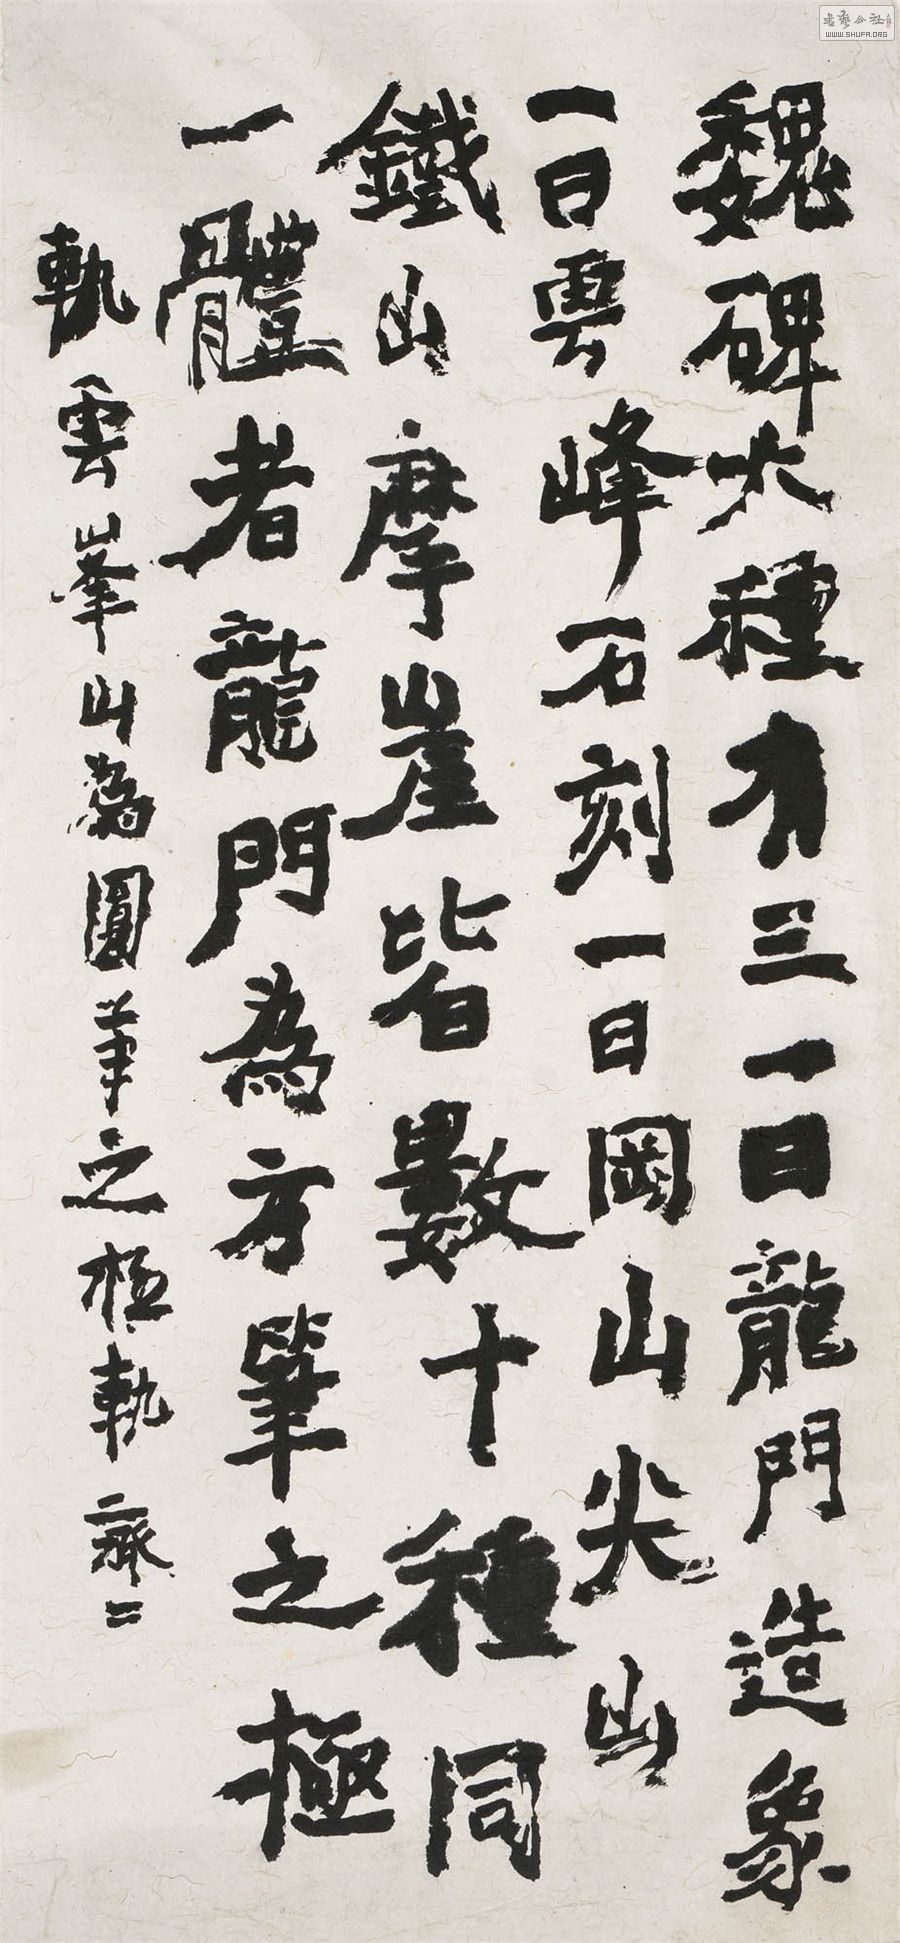 魏碑大種有三一曰龍門造象
一曰雲峰石刻一曰岡山尖山
鐵山摩崖皆數十種同
一體者龍門為方筆之極
軌雲峯山為圓筆之極軌 齊二
WWW.SHUFA.ORG